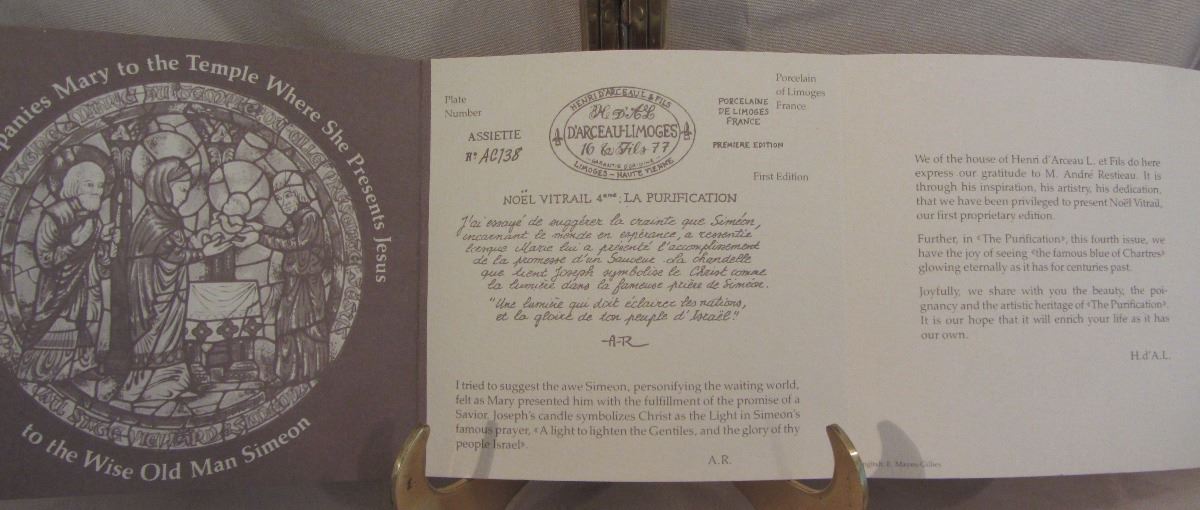 panies Mary to the Temple Where She Presents Jesus
to the Wise Old Man Simeon
Plate
Number
ASSIETTE
N° AC138
HENRI D'ARCEAU L & FILS
H. D'A L
D'ARCEAU-LIMOGES
16 & Fils 77
GARANTIE D'ORIGINE
LIMOGES - HAUTE VIENNE
PORCELAINE
DE LIMOGES
FRANCE
PREMIERE EDITION
Porcelain
of Limoges
France
First Edition
NOËL VITRAIL 4eme: LA PURIFICATION
J'ai essayé de suggérer la crainte que Siméon,
incarnant le monde en espérance, a ressentie
lorsque Marie lui a présenté l'accomplissement
de la promesse d'un Sauveur. La chandelle
que tient Joseph symbolise le Christ comme
la lumière dans la fameuse prière de Siméon.
"Une lumière qui doit éclairer les nations,
et la gloire de ton peuple d'Israël."
-A-R
I tried to suggest the awe Simeon, personifying the waiting world,
felt as Mary presented him with the fulfillment of the promise of a
Savior. Joseph's candle symbolizes Christ as the Light in Simeon's
famous prayer, «A light to lighten the Gentiles, and the glory of thy
people Israel».
A.R.
We of the house of Henri d'Arceau L. et Fils do here
express our gratitude to M. André Restieau. It is
through his inspiration, his artistry, his dedication,
that we have been privileged to present Noël Vitrail,
our first proprietary edition.
Further, in «The Purification», this fourth issue, we
have the joy of seeing «the famous blue of Chartres»
glowing eternally as it has for centuries past.
Joyfully, we share with you the beauty, the poi-
gnancy and the artistic heritage of «The Purification».
It is our hope that it will enrich your life as it has
our own.
H.d'A.L.
E. Mayes-Gillies